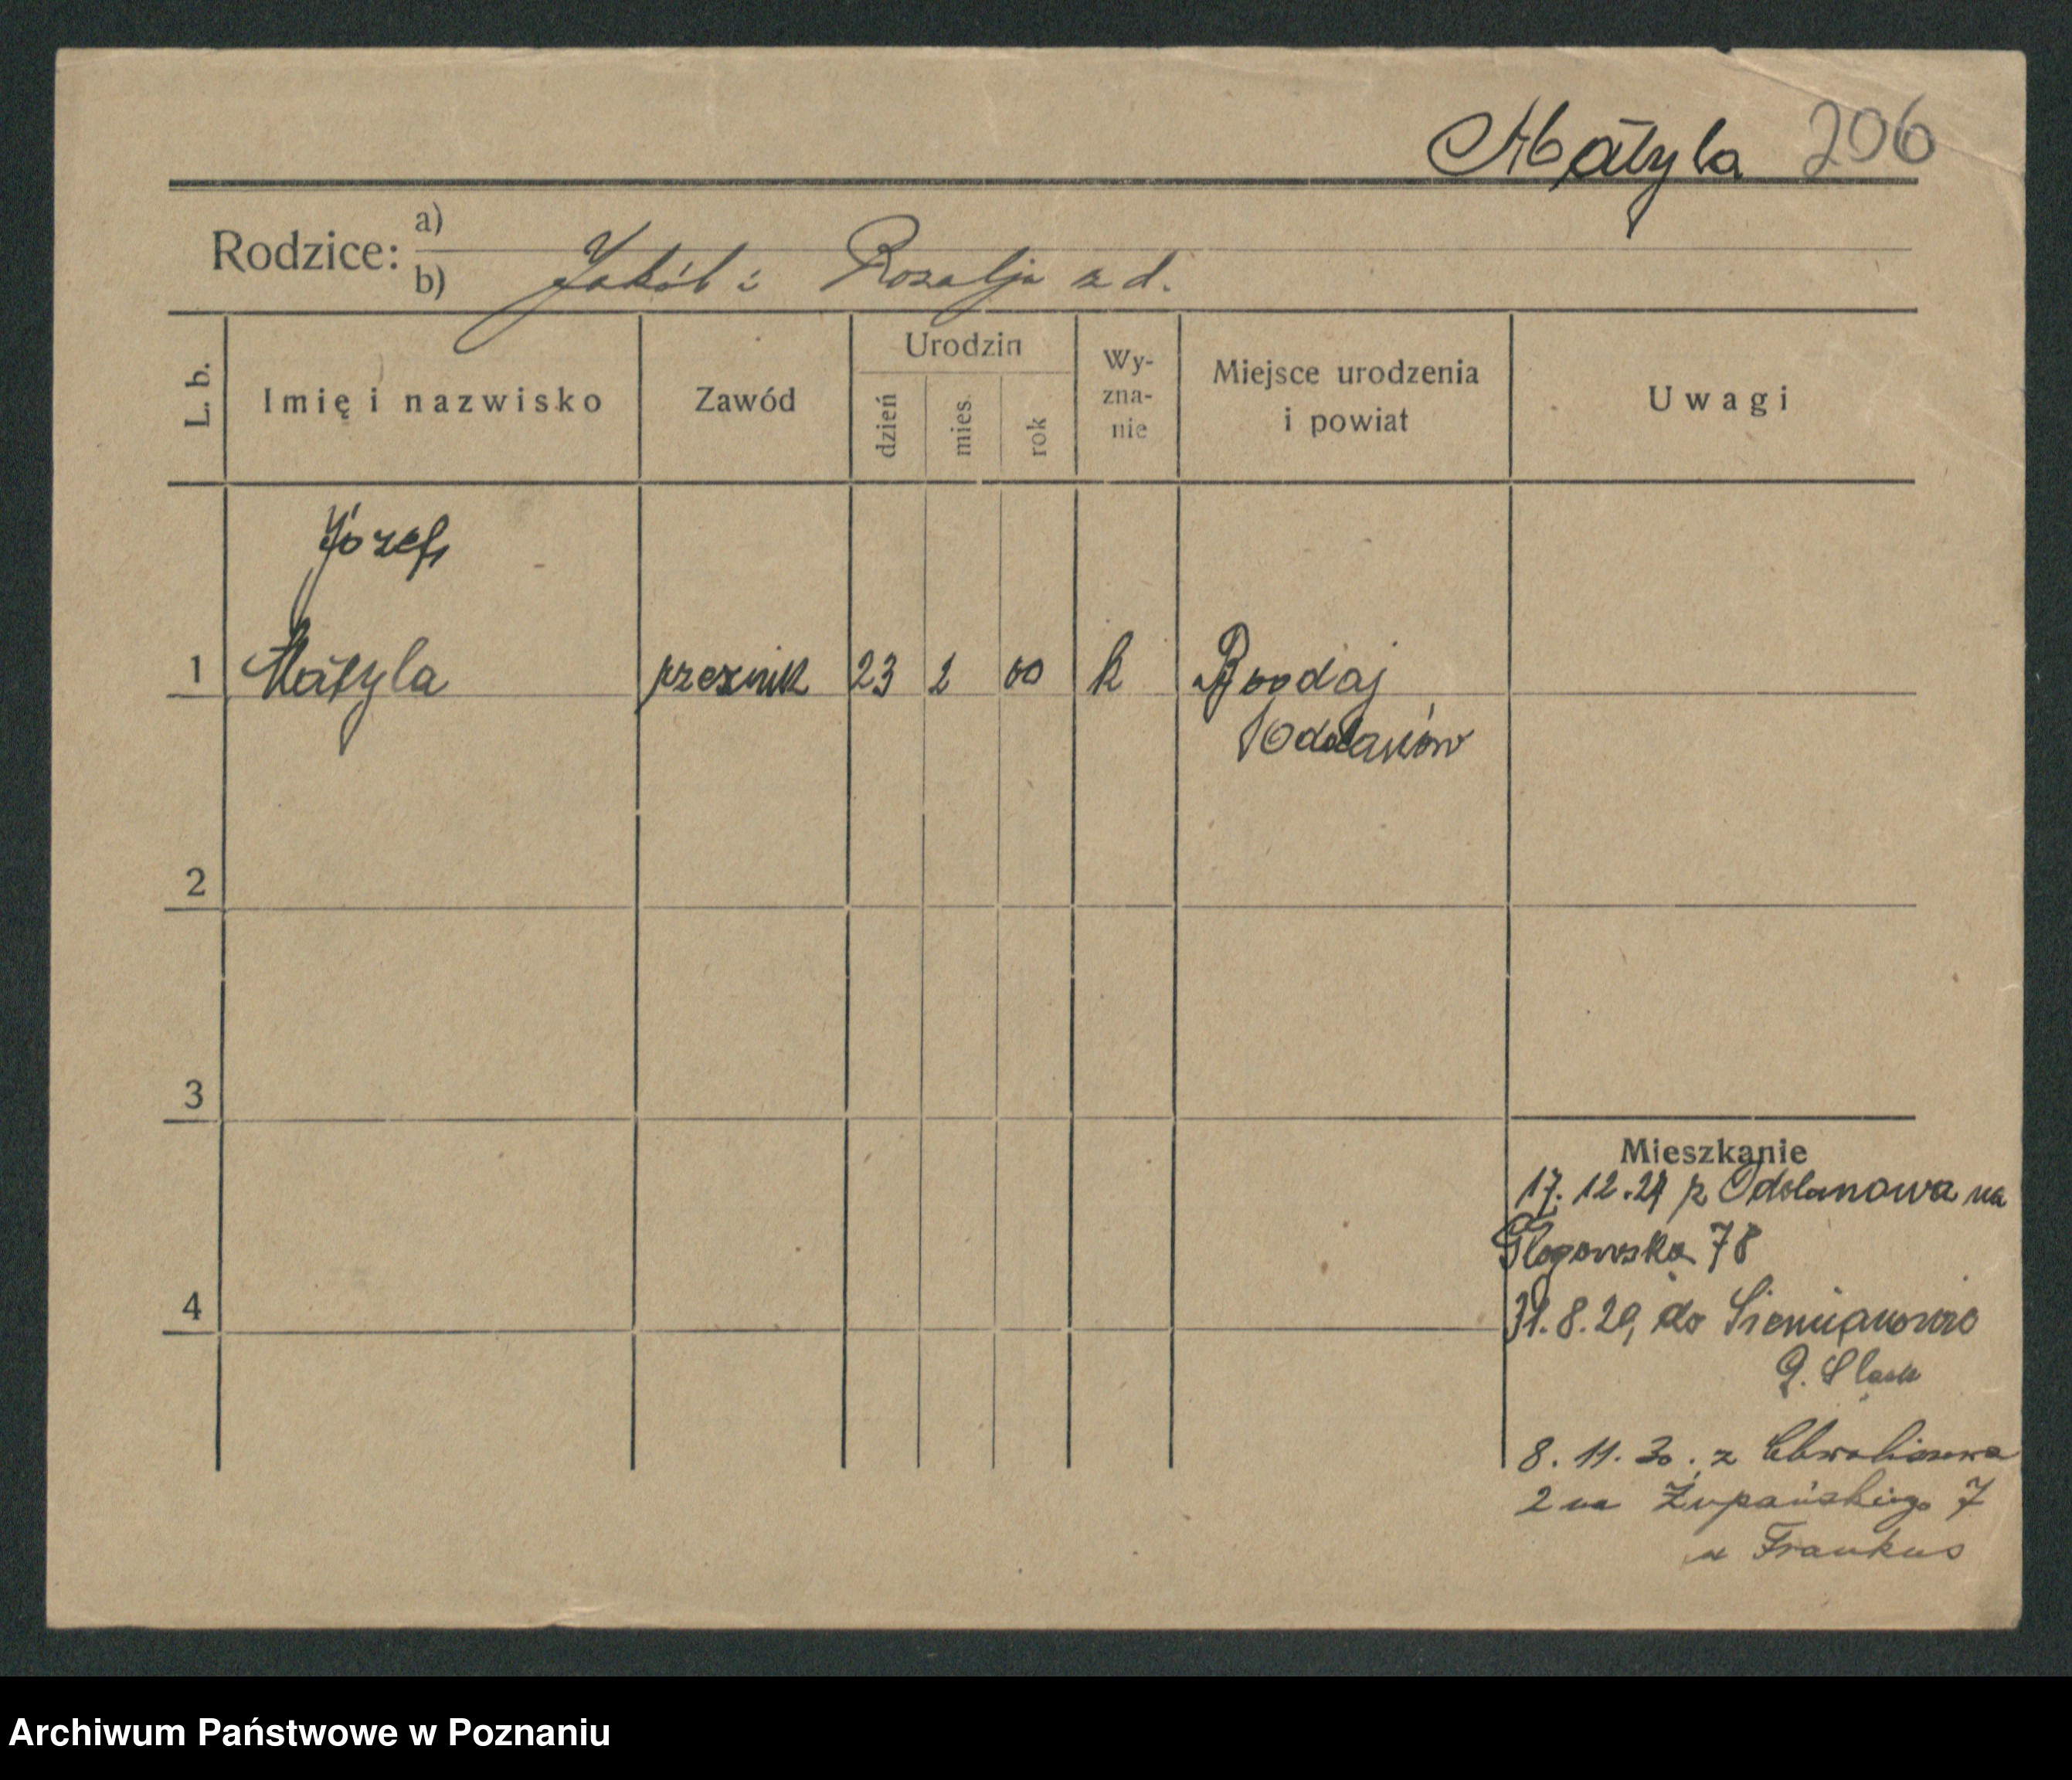 Matyla 206
Rodzice: a)
b) Jakób i Rozalja z d.
L. b. Imię i nazwisko Zawód Urodzin dzień mies. rok Wy-zna-nie Miejsce urodzenia i powiat Uwagi
Józef
1 Matyla rzeznik 23 2 00 k
Odolanów
2
3
Mieszkanie
17. 12. 29 z Odolanowa na
Głogowska 78
4
31. 8. 29, do
G. Śląsk
8. 11. 30. z
2 na Żupańskiego 7
u Frankus
Archiwum Państwowe w Poznaniu